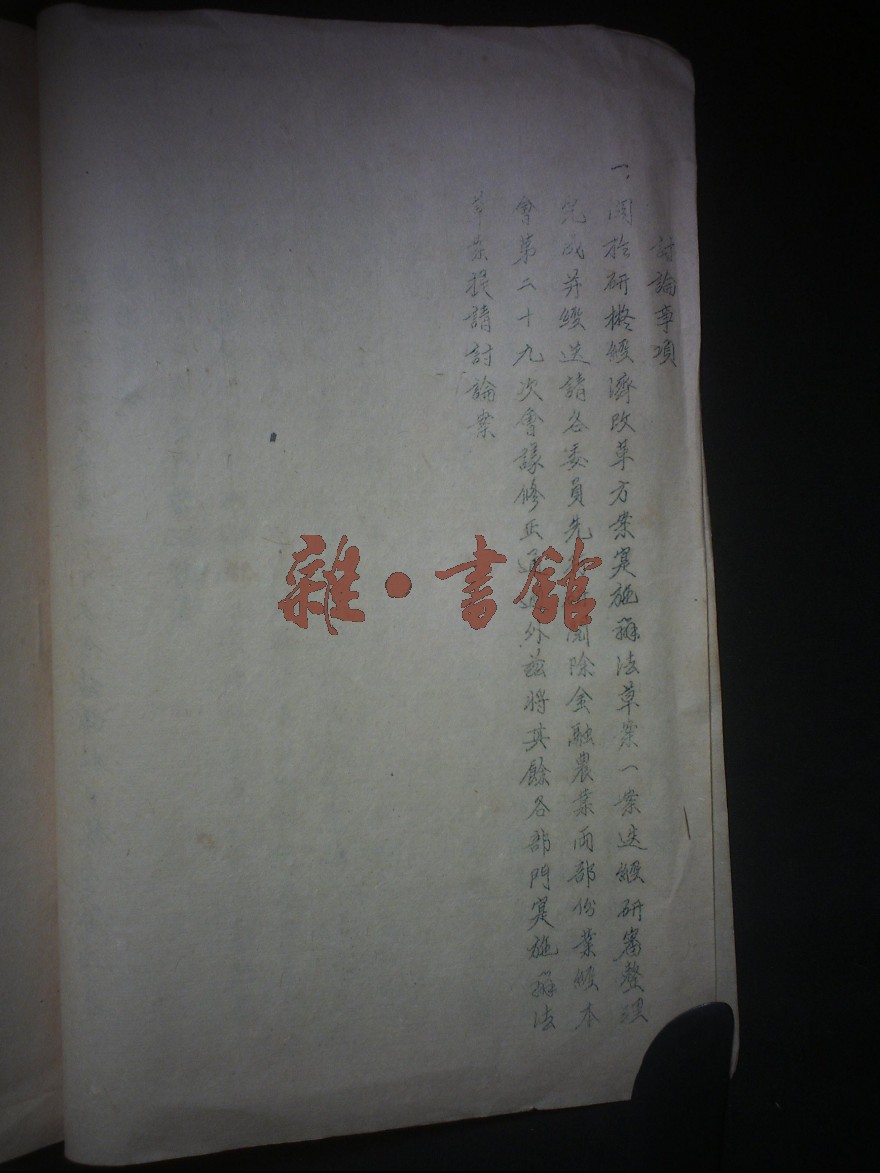 討論事項
一、關於研擬經濟改革方案實施辦法草案一案迭經研審整理
完成并經送請各委員先閱除金融農業兩部份業經本
會第二十九次會議修正通過外茲將其餘各部門實施辦法
草案提請討論案
雜·書館